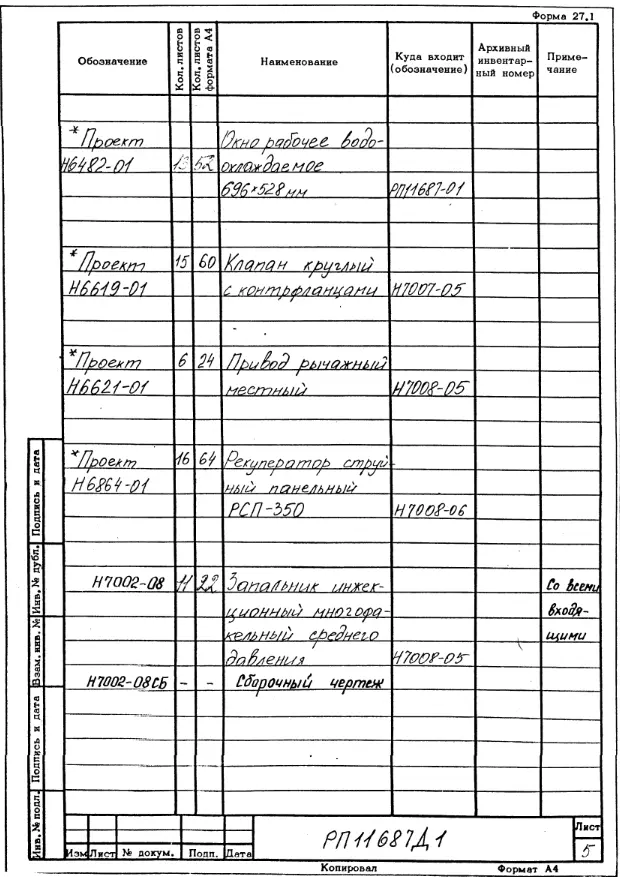 Форма 27.1
Обозначение Кол. листов Кол. листов формата А4 Наименование Куда входит (обозначение) Архивный инвентарный номер Примечание
*Проект Окно рабочее водо-
Н6482-01 13 52 охлаждаемое
696×528 мм РП11687-01
*Проект 15 60 Клапан круглый
Н6619-01 с контрфланцами Н7007-05
*Проект 6 24 Привод рычажный
Н6621-01 местный Н7008-05
*Проект 16 64 Рекуператор струй-
Н6864-01 ный панельный
РСП-350 Н7008-06
Н7002-08 11 22 Запальник инжек- Со всеми
ционный многофа- входя-
кельный среднего щими
давления Н7008-05
Н7002-08СБ - - Сборочный чертеж
Подпись и дата
Инв. № дубл.
Взам. инв. №
Подпись и дата
Инв. № подл.
РП11687Д1
Лист
5
Изм Лист № докум. Подп. Дата
Копировал Формат А4